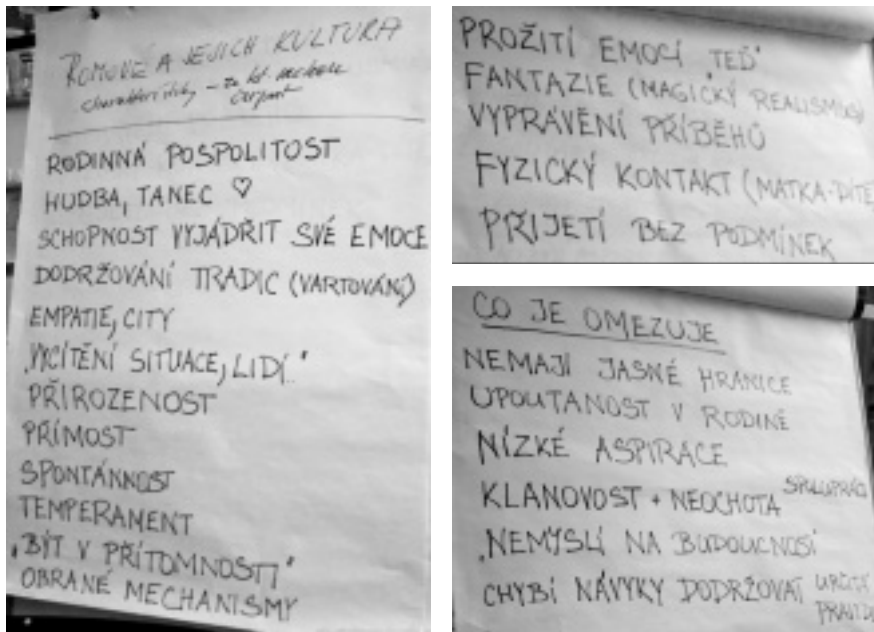 ROMOVÉ A JEJICH KULTURA
charakteristiky – ze kt. mohou
čerpat
RODINNÁ POSPOLITOST
HUDBA, TANEC ♡
SCHOPNOST VYJÁDŘIT SVÉ EMOCE
DODRŽOVÁNÍ TRADIC (VARTOVÁNÍ)
EMPATIE, CITY
„VYCÍTĚNÍ SITUACE, LIDÍ.."
PŘIROZENOST
PŘÍMOST
SPONTÁNNOST
TEMPERAMENT
„BÝT V PŘÍTOMNOSTI"
OBRANÉ MECHANISMY
PROŽITÍ EMOCÍ TEĎ"
FANTAZIE (MAGICKÝ REALISMUS)
VYPRÁVĚNÍ PŘÍBĚHŮ
FYZICKÝ KONTAKT (MATKA-DÍTĚ
PŘIJETÍ BEZ PODMÍNEK
CO JE OMEZUJE
NEMAJÍ JASNÉ HRANICE
UPOUTANOST V RODINĚ
NÍZKÉ ASPIRACE
KLANOVOST + NEOCHOTA SPOLUPRÁCE
„NEMYSLÍ NA BUDOUCNOST
CHYBÍ NÁVYKY DODRŽOVAT URČITÁ
PRAVIDLA